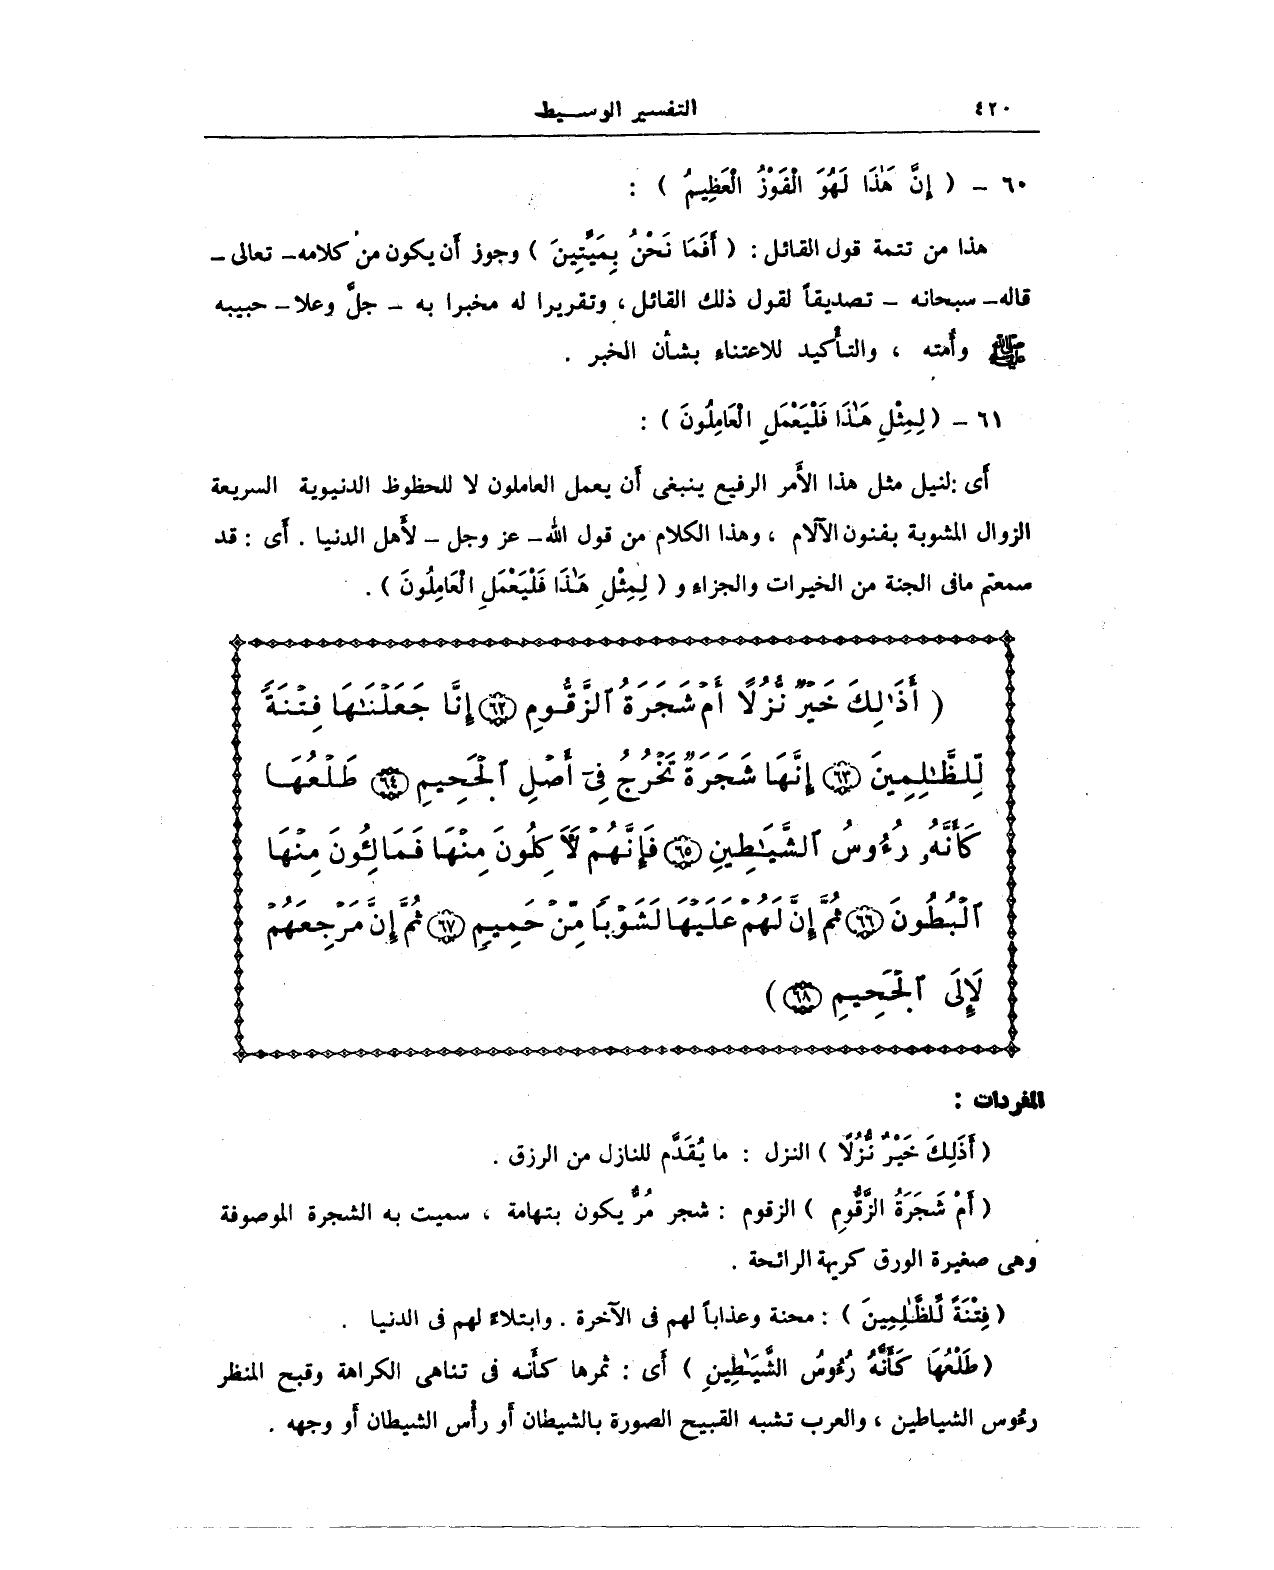 ٤٢٠ التفسير الوسيط
٦٠ - ( إِنَّ هَٰذَا لَهُوَ الْفَوْزُ الْعَظِيمُ ) :
هذا من تتمة قول القائل : ( أَفَمَا نَحْنُ بِمَيِّتِينَ ) وجوز أن يكون من كلامه - تعالى -
قاله - سبحانه - تصديقاً لقول ذلك القائل ، وتقريرا له مخبرا به - جلَّ وعلا - حبيبه
ﷺ وأُمته ، والتأكيد للاعتناء بشأن الخبر .
٦١ - ( لِمِثْلِ هَٰذَا فَلْيَعْمَلِ الْعَامِلُونَ ) :
أَى : لنيل مثل هذا الأَمر الرفيع ينبغى أَن يعمل العاملون لا للحظوظ الدنيوية السريعة
الزوال المشوبة بفنون الآلام ، وهذا الكلام من قول الله - عز وجل - لأَهل الدنيا . أَى : قد
سمعتم مافى الجنة من الخيرات والجزاء و ( لِمِثْلِ هَٰذَا فَلْيَعْمَلِ الْعَامِلُونَ ) .
( أَذَٰلِكَ خَيْرٌ نُّزُلًا أَمْ شَجَرَةُ ٱلزَّقُّومِ ٦٢ إِنَّا جَعَلْنَٰهَا فِتْنَةً
لِّلظَّٰلِمِينَ ٦٣ إِنَّهَا شَجَرَةٌ تَخْرُجُ فِىٓ أَصْلِ ٱلْجَحِيمِ ٦٤ طَلْعُهَا
كَأَنَّهُۥ رُءُوسُ ٱلشَّيَٰطِينِ ٦٥ فَإِنَّهُمْ لَآكِلُونَ مِنْهَا فَمَالِئُونَ مِنْهَا
ٱلْبُطُونَ ٦٦ ثُمَّ إِنَّ لَهُمْ عَلَيْهَا لَشَوْبًا مِّنْ حَمِيمٍ ٦٧ ثُمَّ إِنَّ مَرْجِعَهُمْ
لَإِلَى ٱلْجَحِيمِ ٦٨ )
المفردات :
( أَذَلِكَ خَيْرٌ نُّزُلًا ) النزل : ما يُقَدَّم للنازل من الرزق .
( أَمْ شَجَرَةُ الزَّقُّومِ ) الزقوم : شجر مُرٌّ يكون بتهامة ، سميت به الشجرة الموصوفة
وهى صغيرة الورق كريهة الرائحة .
( فِتْنَةً لِّلظَّٰلِمِينَ ) : محنة وعذاباً لهم فى الآخرة . وابتلاءً لهم فى الدنيا .
( طَلْعُهَا كَأَنَّهُ رُءُوسُ الشَّيَٰطِينِ ) أَى : ثمرها كأَنه فى تناهى الكراهة وقبح المنظر
رءوس الشياطين ، والعرب تشبه القبيح الصورة بالشيطان أَو رأْس الشيطان أَو وجهه .